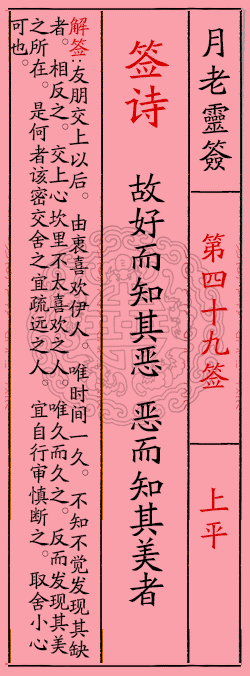 月老靈簽
第四十九签
上平
签诗
故好而知其恶 恶而知其美者
解签:友朋交上以后。由衷喜欢伊人。唯时间一久。不知不觉发现其缺
者。相反之。交上心坎里不太喜欢之人。唯久而久之。反而发现其美
之所在。是何者该密交舍之宜疏远之人。宜自行审慎断之。取舍小心
可也。